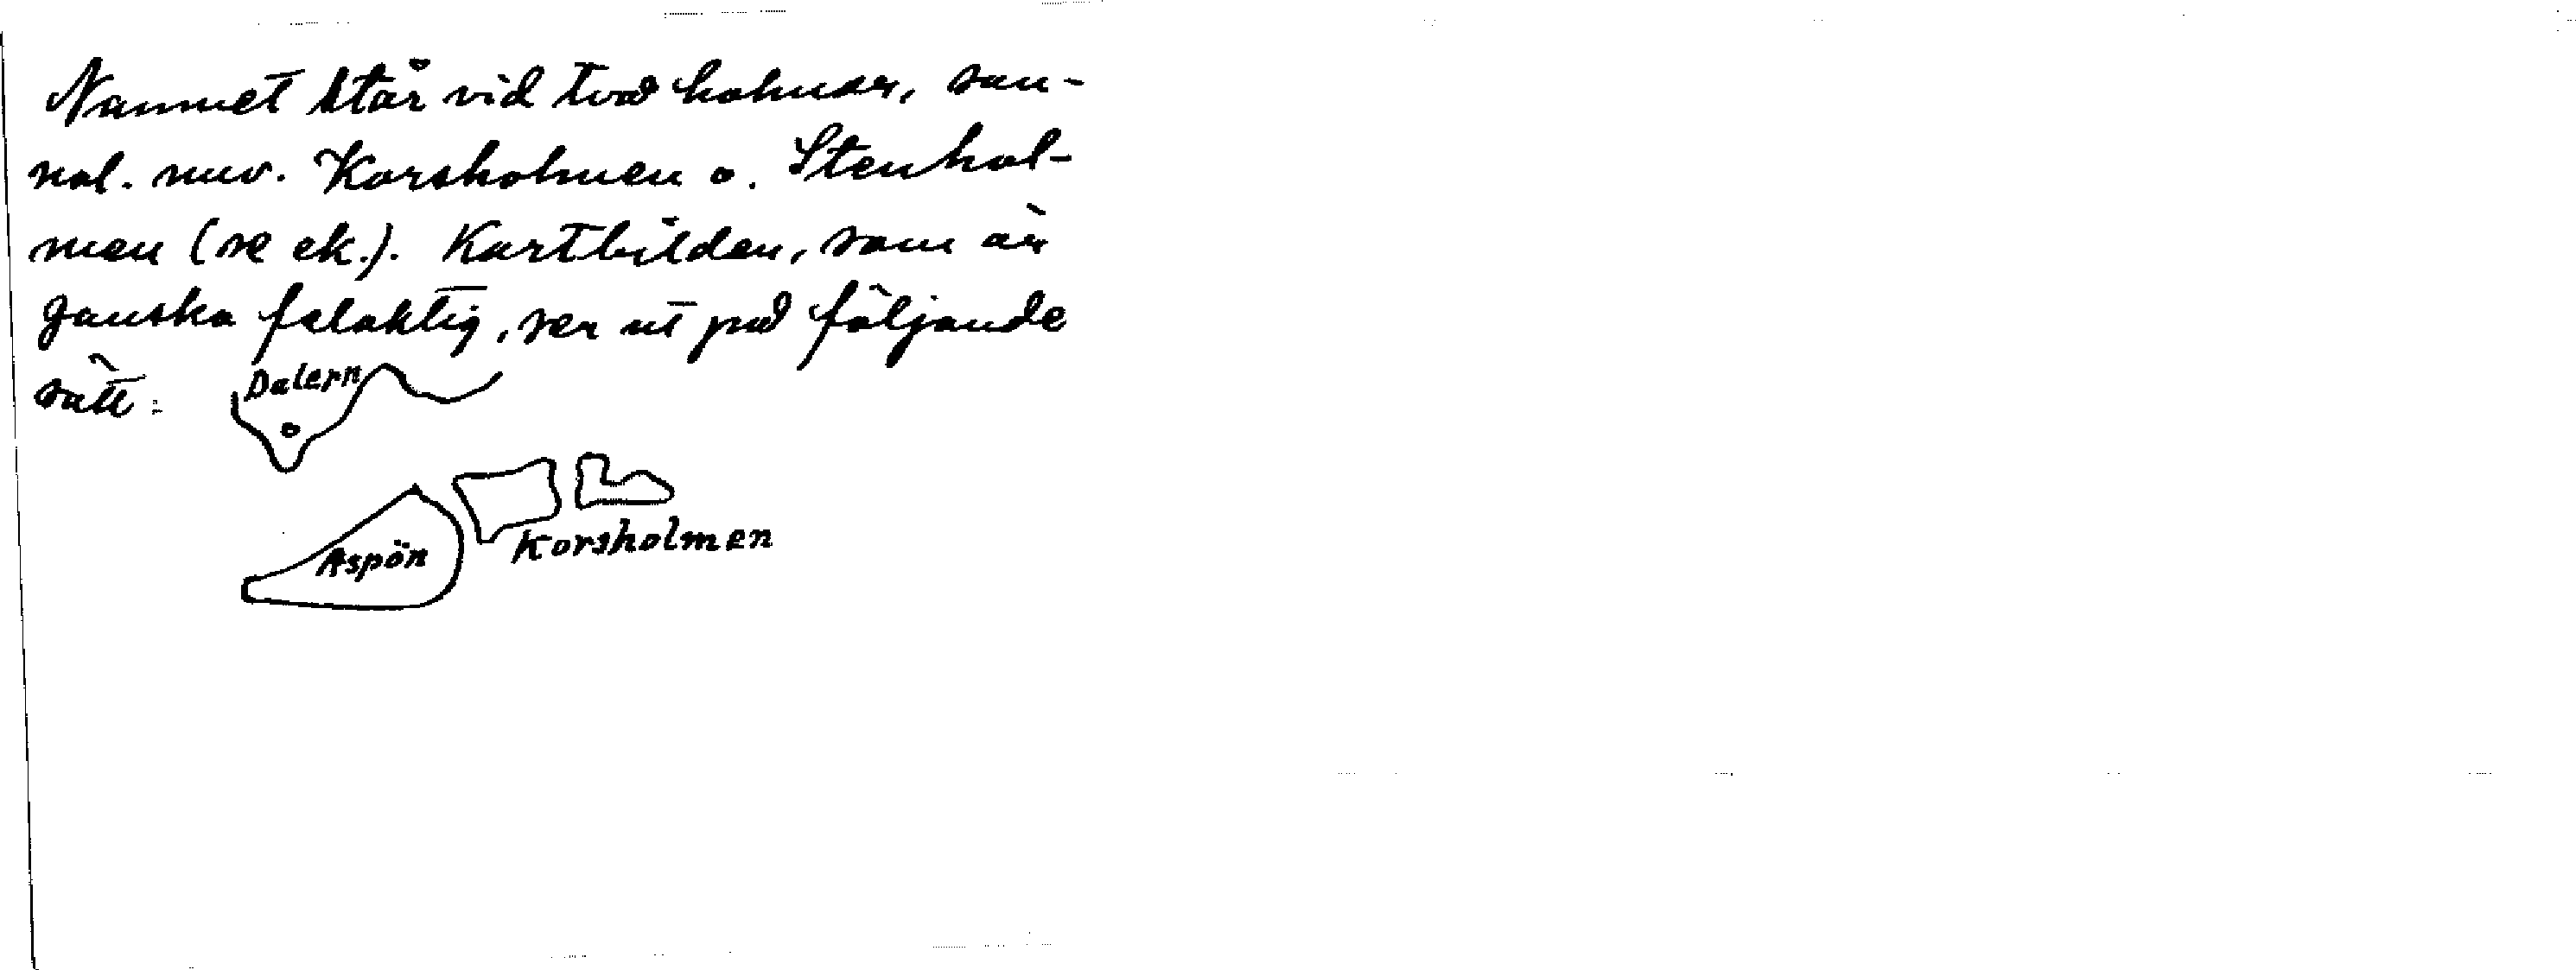 Namnet står vid två holmar, san-
nol. nuv. Korsholmen o. Stenhol-
men (se ek.). Kartbilden, som är
ganska felaktig, ser ut på följande
sätt:
Dalern
Aspön
Korsholmen